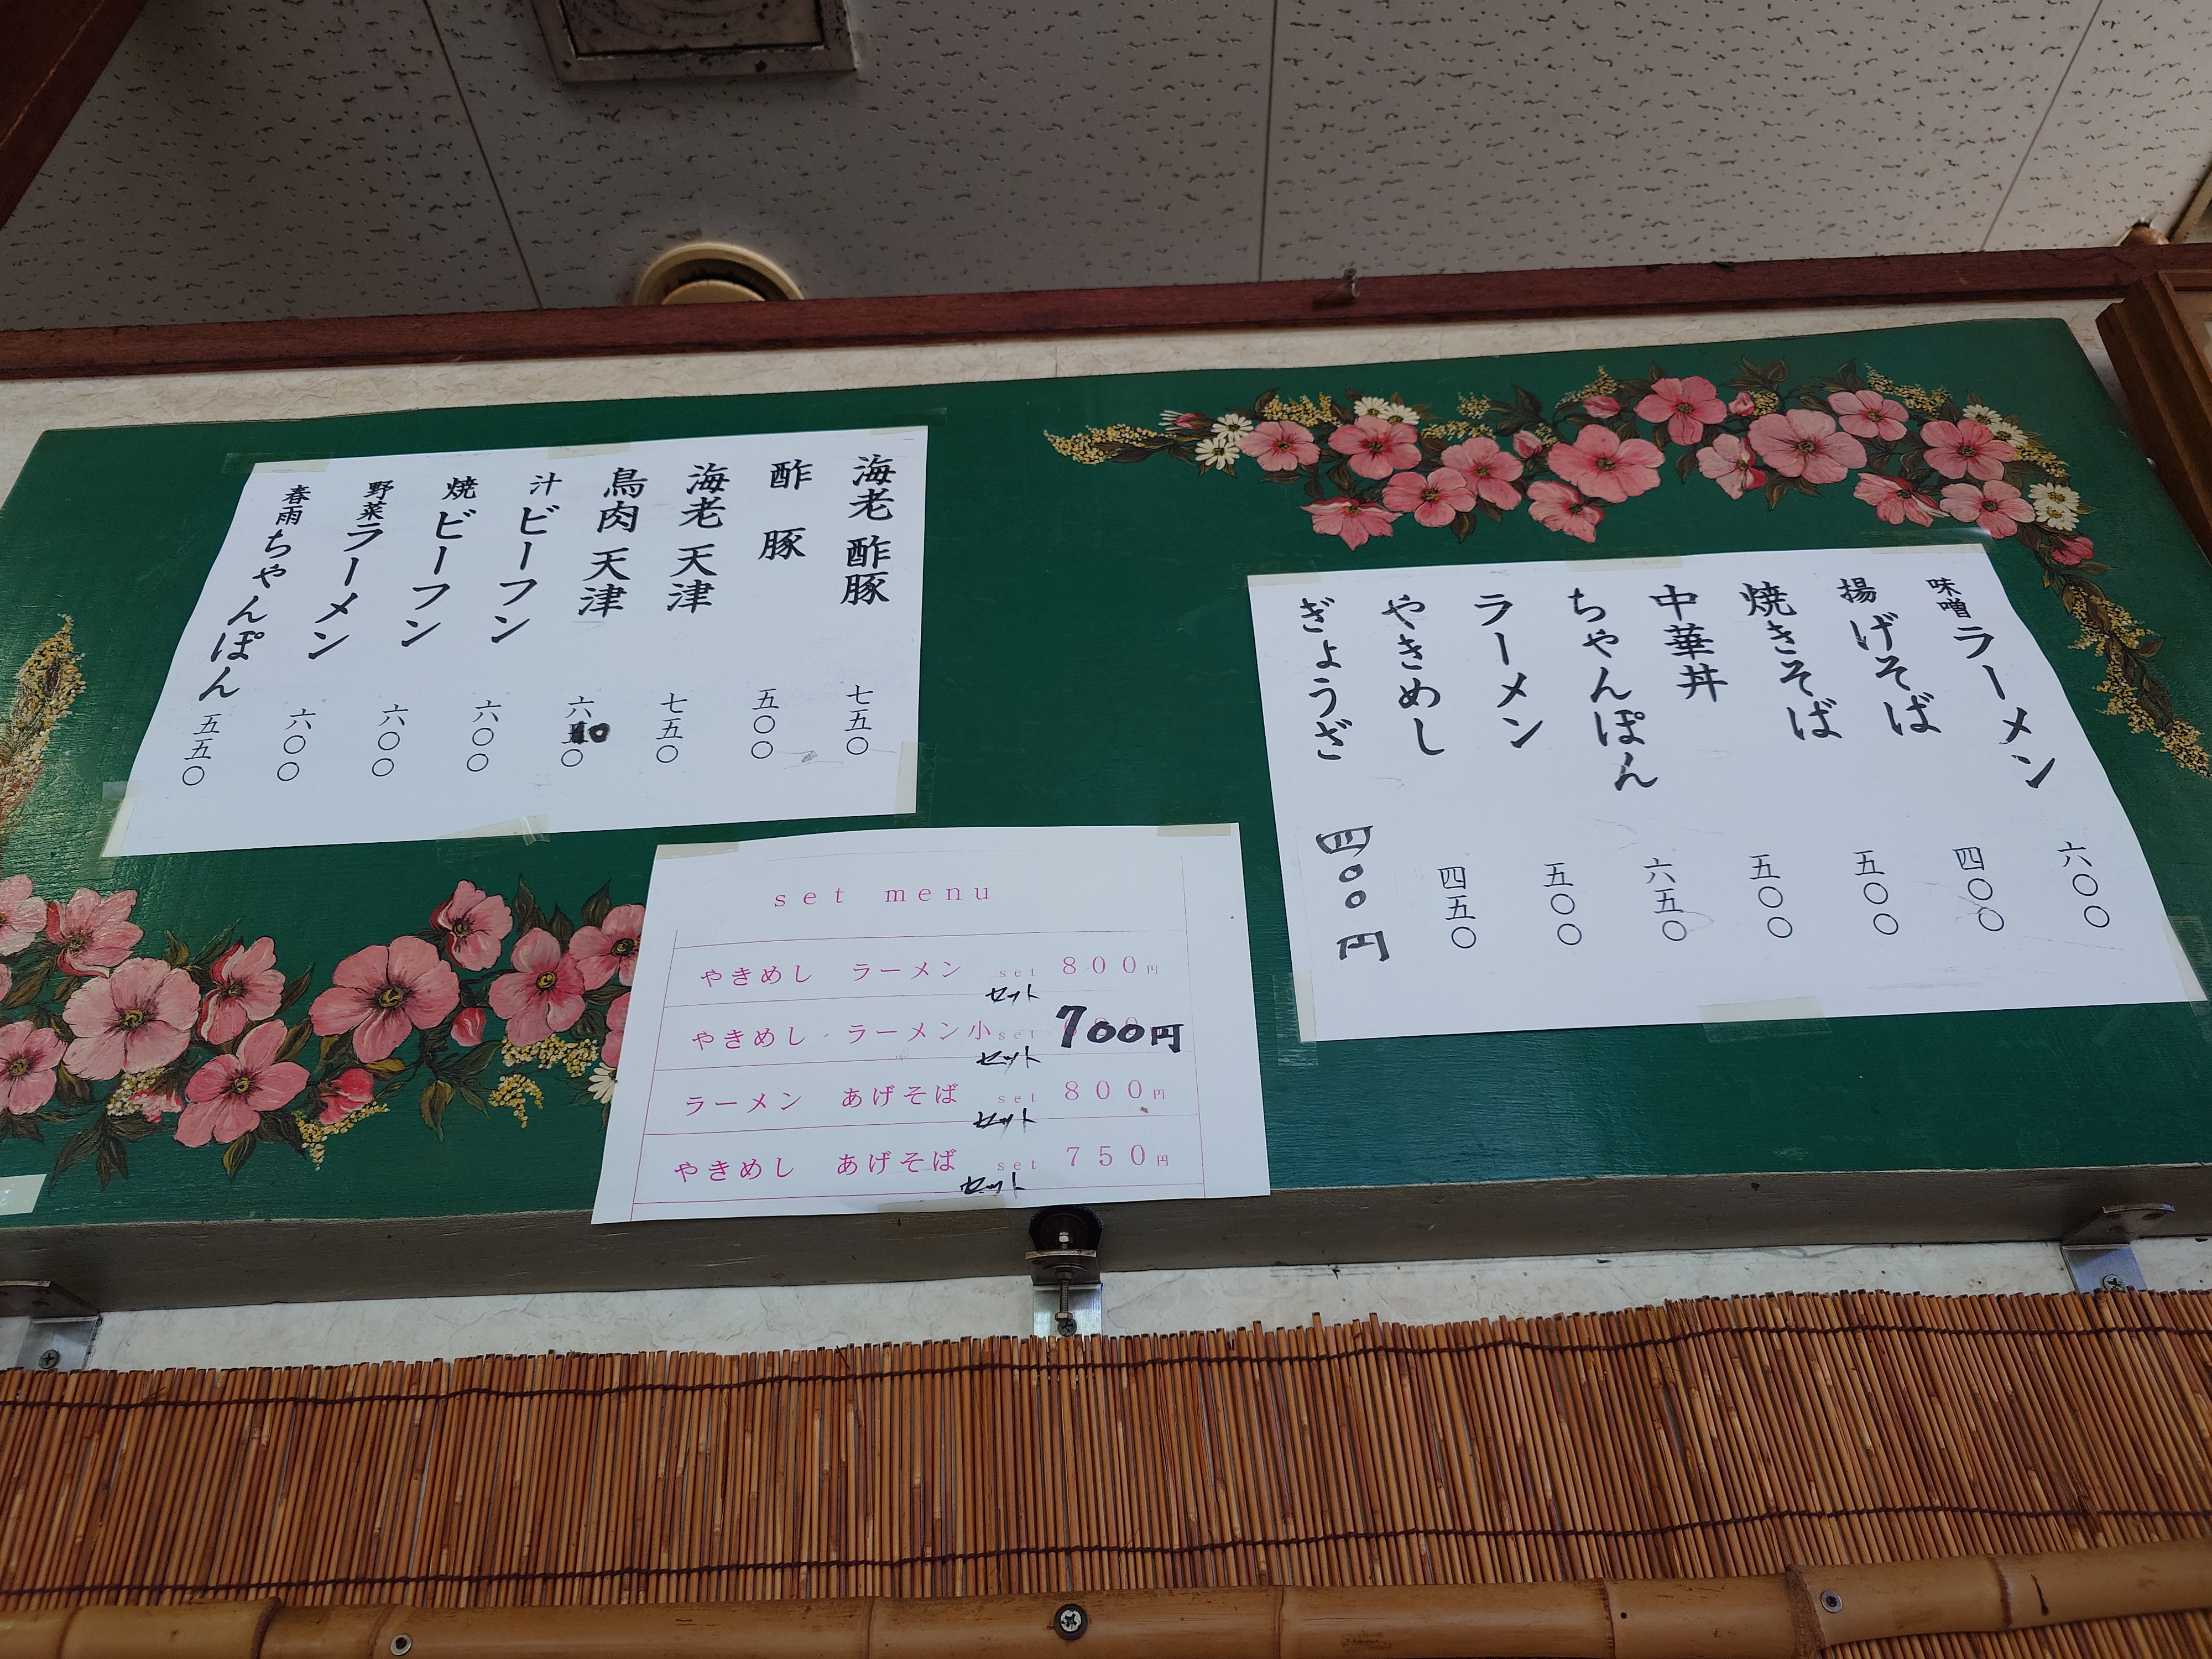 味噌ラーメン 六〇〇
揚げそば 四〇〇
焼きそば 五〇〇
中華丼 五〇〇
ちゃんぽん 六五〇
ラーメン 五〇〇
やきめし 四五〇
ぎょうざ 四〇〇円
海老 酢豚 七五〇
酢 豚 五〇〇
海老 天津 七五〇
鳥肉 天津 六〇〇
汁ビーフン 六〇〇
焼ビーフン 六〇〇
野菜ラーメン 六〇〇
春雨ちゃんぽん 五五〇
set menu
やきめし ラーメン set 800円
セット
やきめし ラーメン小 set 700円
セット
ラーメン あげそば set 800円
セット
やきめし あげそば set 750円
セット